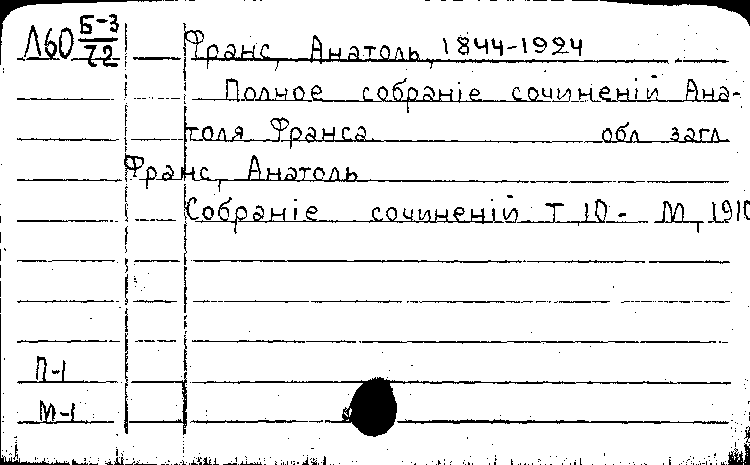 Л60 Б-3/72
Франс, Анатоль, 1844-1924
Полное собраніе сочиненій Ана-
толя Франса обл загл
Франс, Анатоль
Собраніе сочиненій Т 10 - М, 1910
П-1
М-1